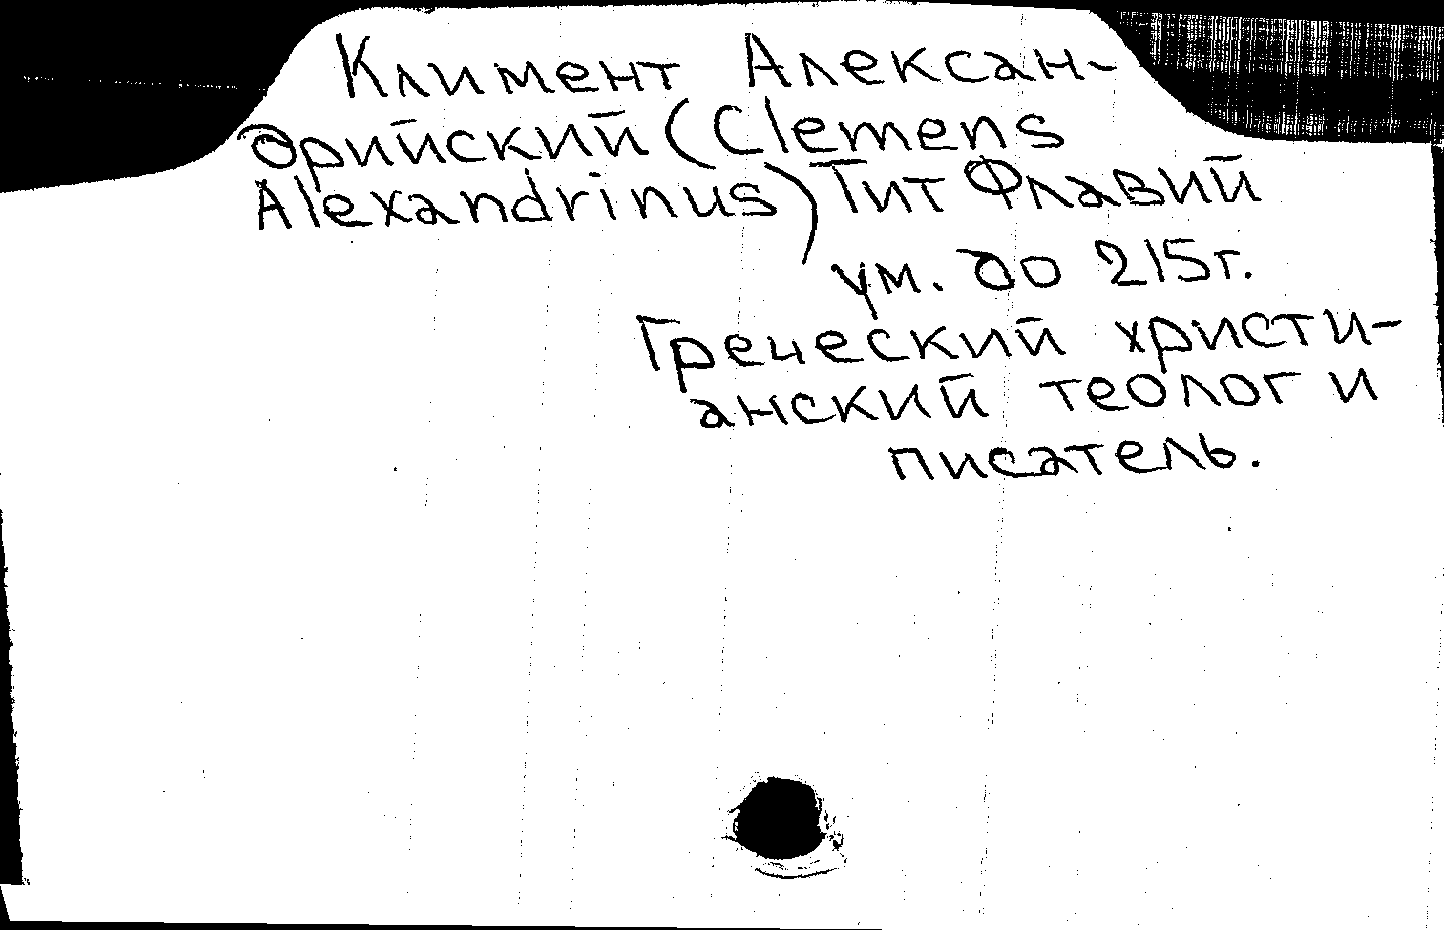 Климент Алексан-
дрийский (Clemens
Alexandrinus) Тит Флавий
ум. до 215г.
Греческий христи-
анский теолог и
писатель.